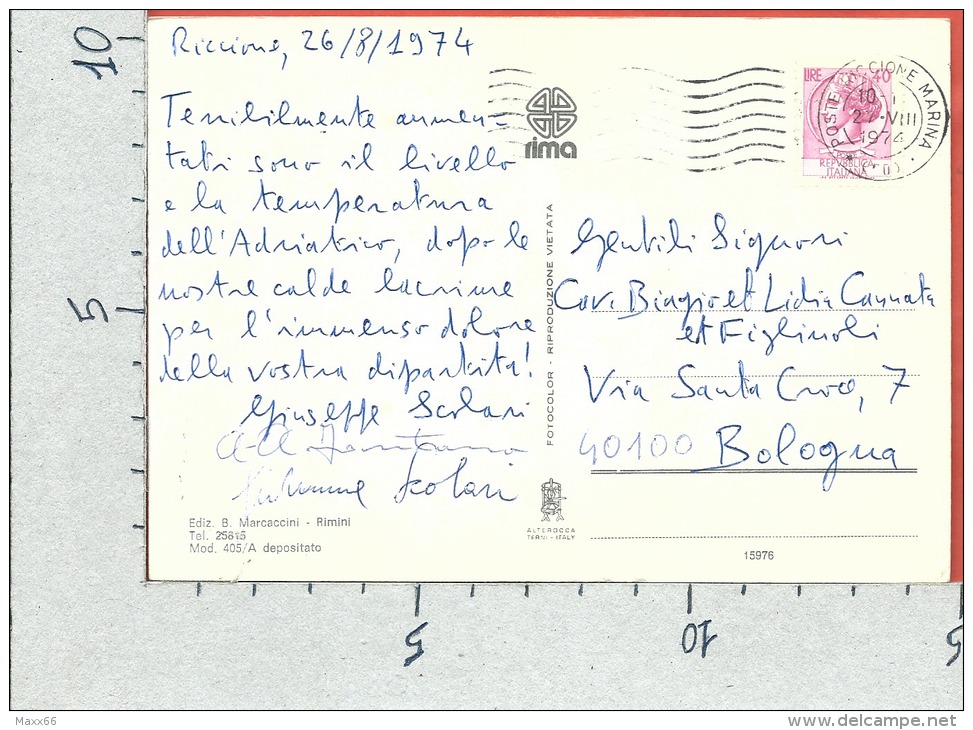 10
5
Riccione, 26/8/1974
Terribilmente aumen-
tati sono il livello
e la temperatura
dell'Adriatico, dopo le
nostre calde lacrime
per l'immenso dolore
della vostra dipartita!
Giuseppe Scolari
Scolari
Ediz. B. Marcaccini - Rimini
Tel. 25815
Mod. 405/A depositato
rima
FOTOCOLOR - RIPRODUZIONE VIETATA
ALTEROCCA
TERNI - ITALY
LIRE 40
REPVBBLICA
ITALIANA
POSTE RICCIONE MARINA
10
27·VIII
1974
Gentili Signori
Cav. Biagio et Lidia Cannata
et Figlinoli
Via Santa Croce, 7
40100 Bologna
15976
5
10
5
Maxx66
www.delcampe.net